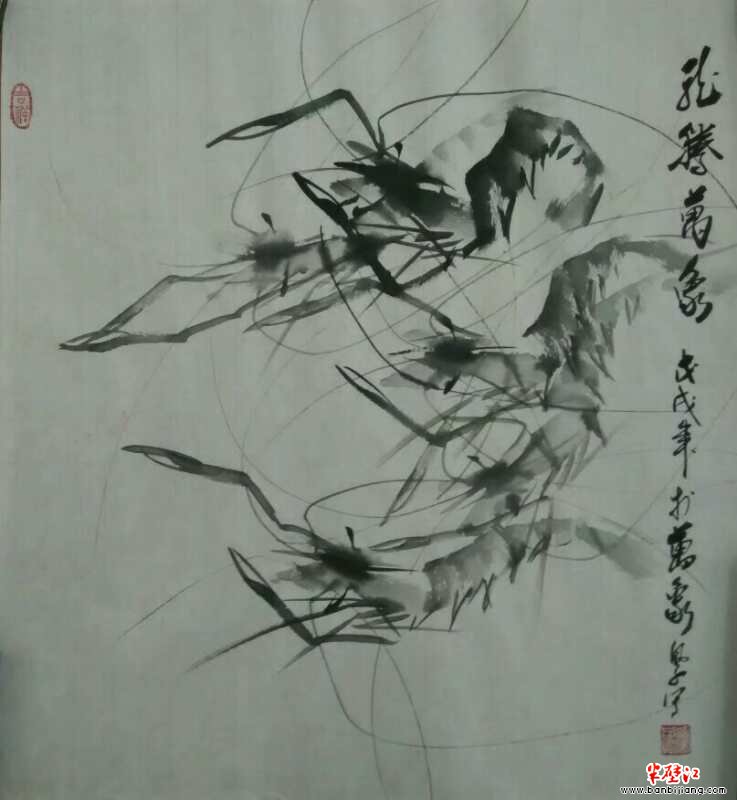 龙腾萬象
戊戌年于萬象
吉祥
半壁江
www.banbijiang.com